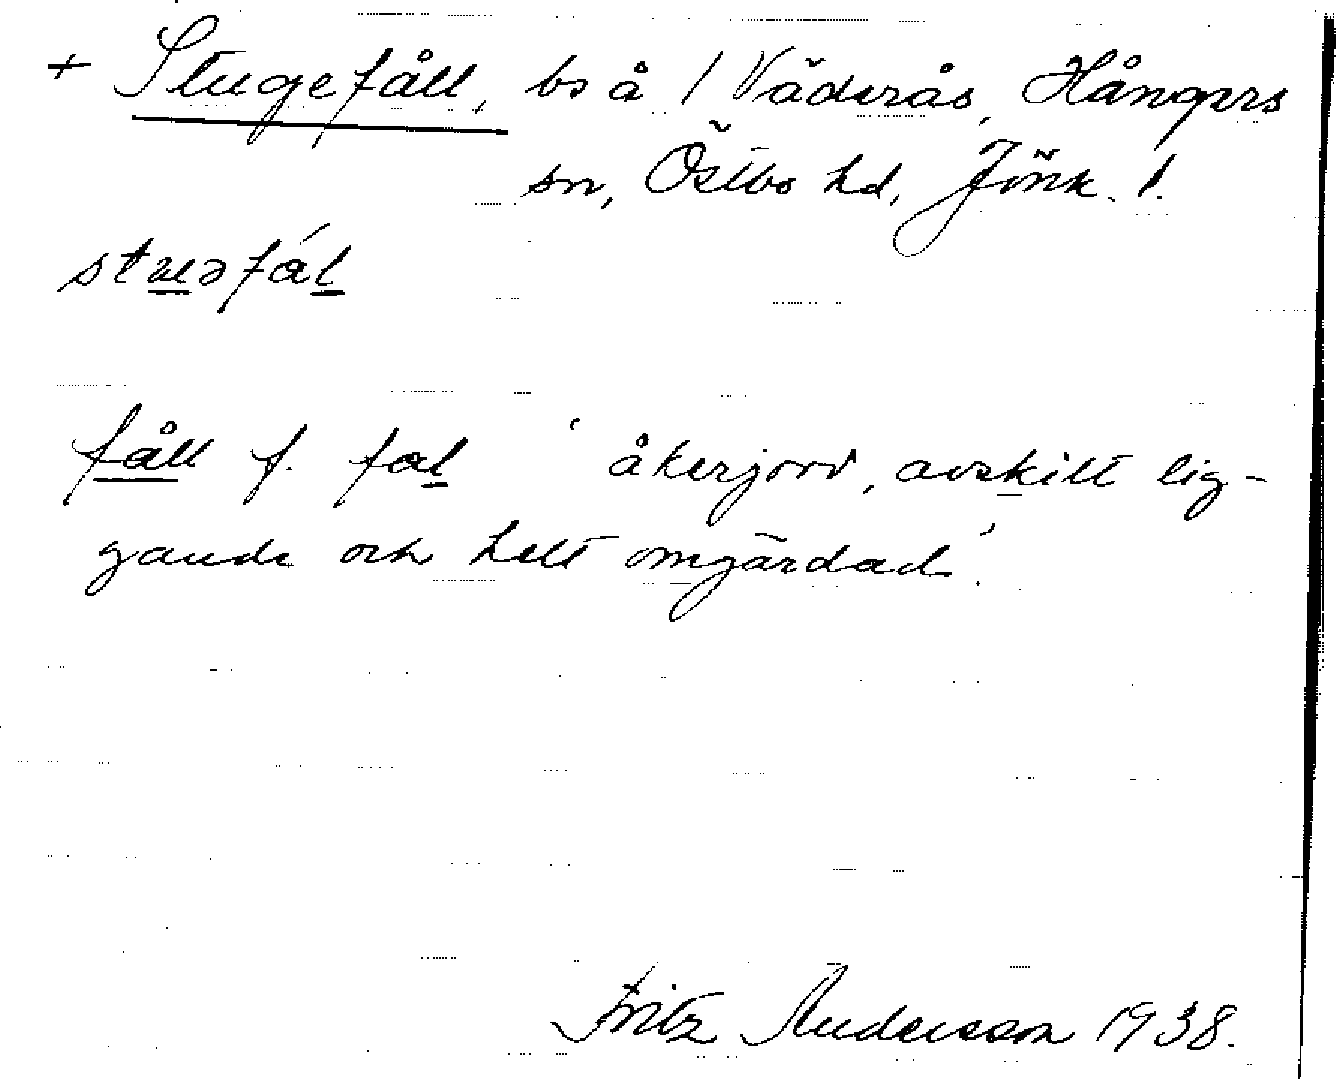 + Stugefåll, bs å / Väderås, Hångers
sn, Östbo hd, Jönk. l.
fåll f. fal 'åkerjord, avskilt lig-
gande och helt omgärdad'.
Fritz Andersson 1938.